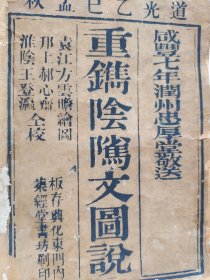 道光乙巳孟秋
咸豐七年潤州忠厚堂敬送
重鐫陰隲文圖說
袁江方雲疇繪圖
邗上郝心齋
淮陰王登瀛
仝校
板存興化東門內
集經堂書坊刷印